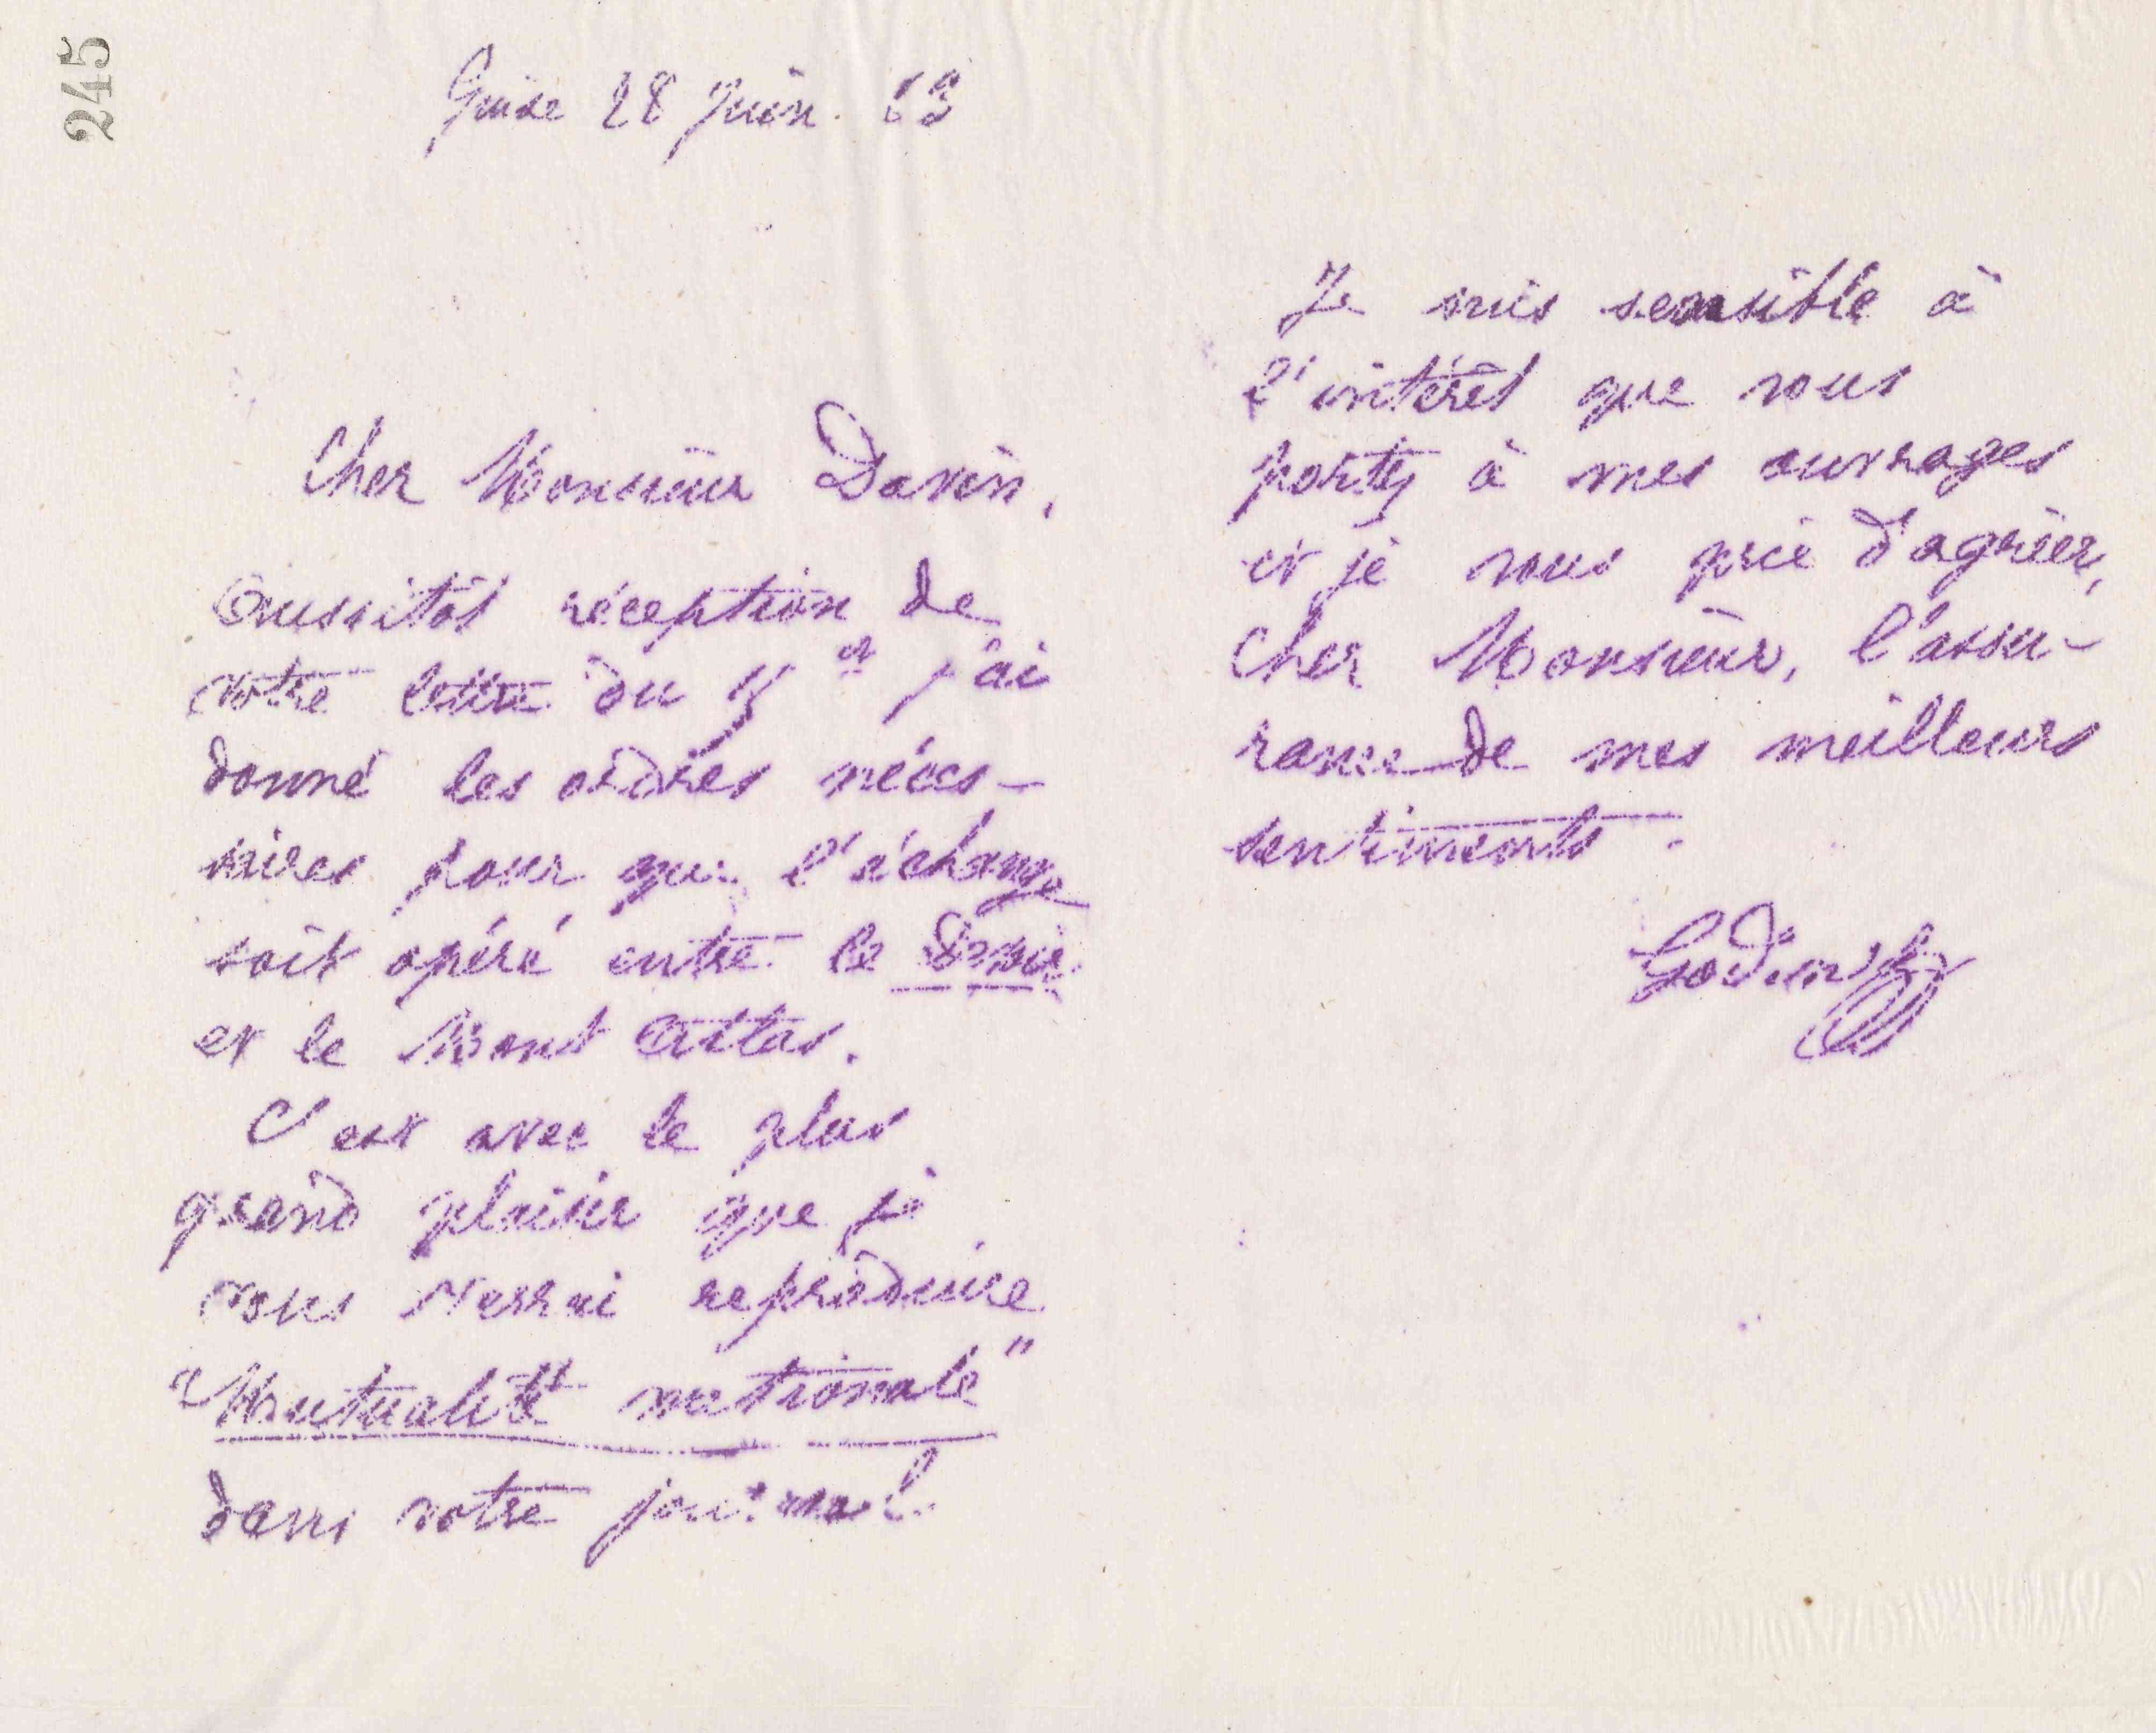 245
Guise 28 Juin. 83
Cher Monsieur Davin,
Aussitôt réception de
votre lettre du j'ai
donné les ordres néces-
saires pour que l'échange
soit opéré entre le Devoir
et le Mont Atlas.
C'est avec le plus
grand plaisir que je
vous verrai reproduire
"Mutualité nationale"
dans votre journal.
Je suis sensible à
l'intérêt que vous
portez à mes ouvrages
et je vous prie d'agréer,
Cher Monsieur, l'assu-
rance de mes meilleurs
sentiments.
Godin